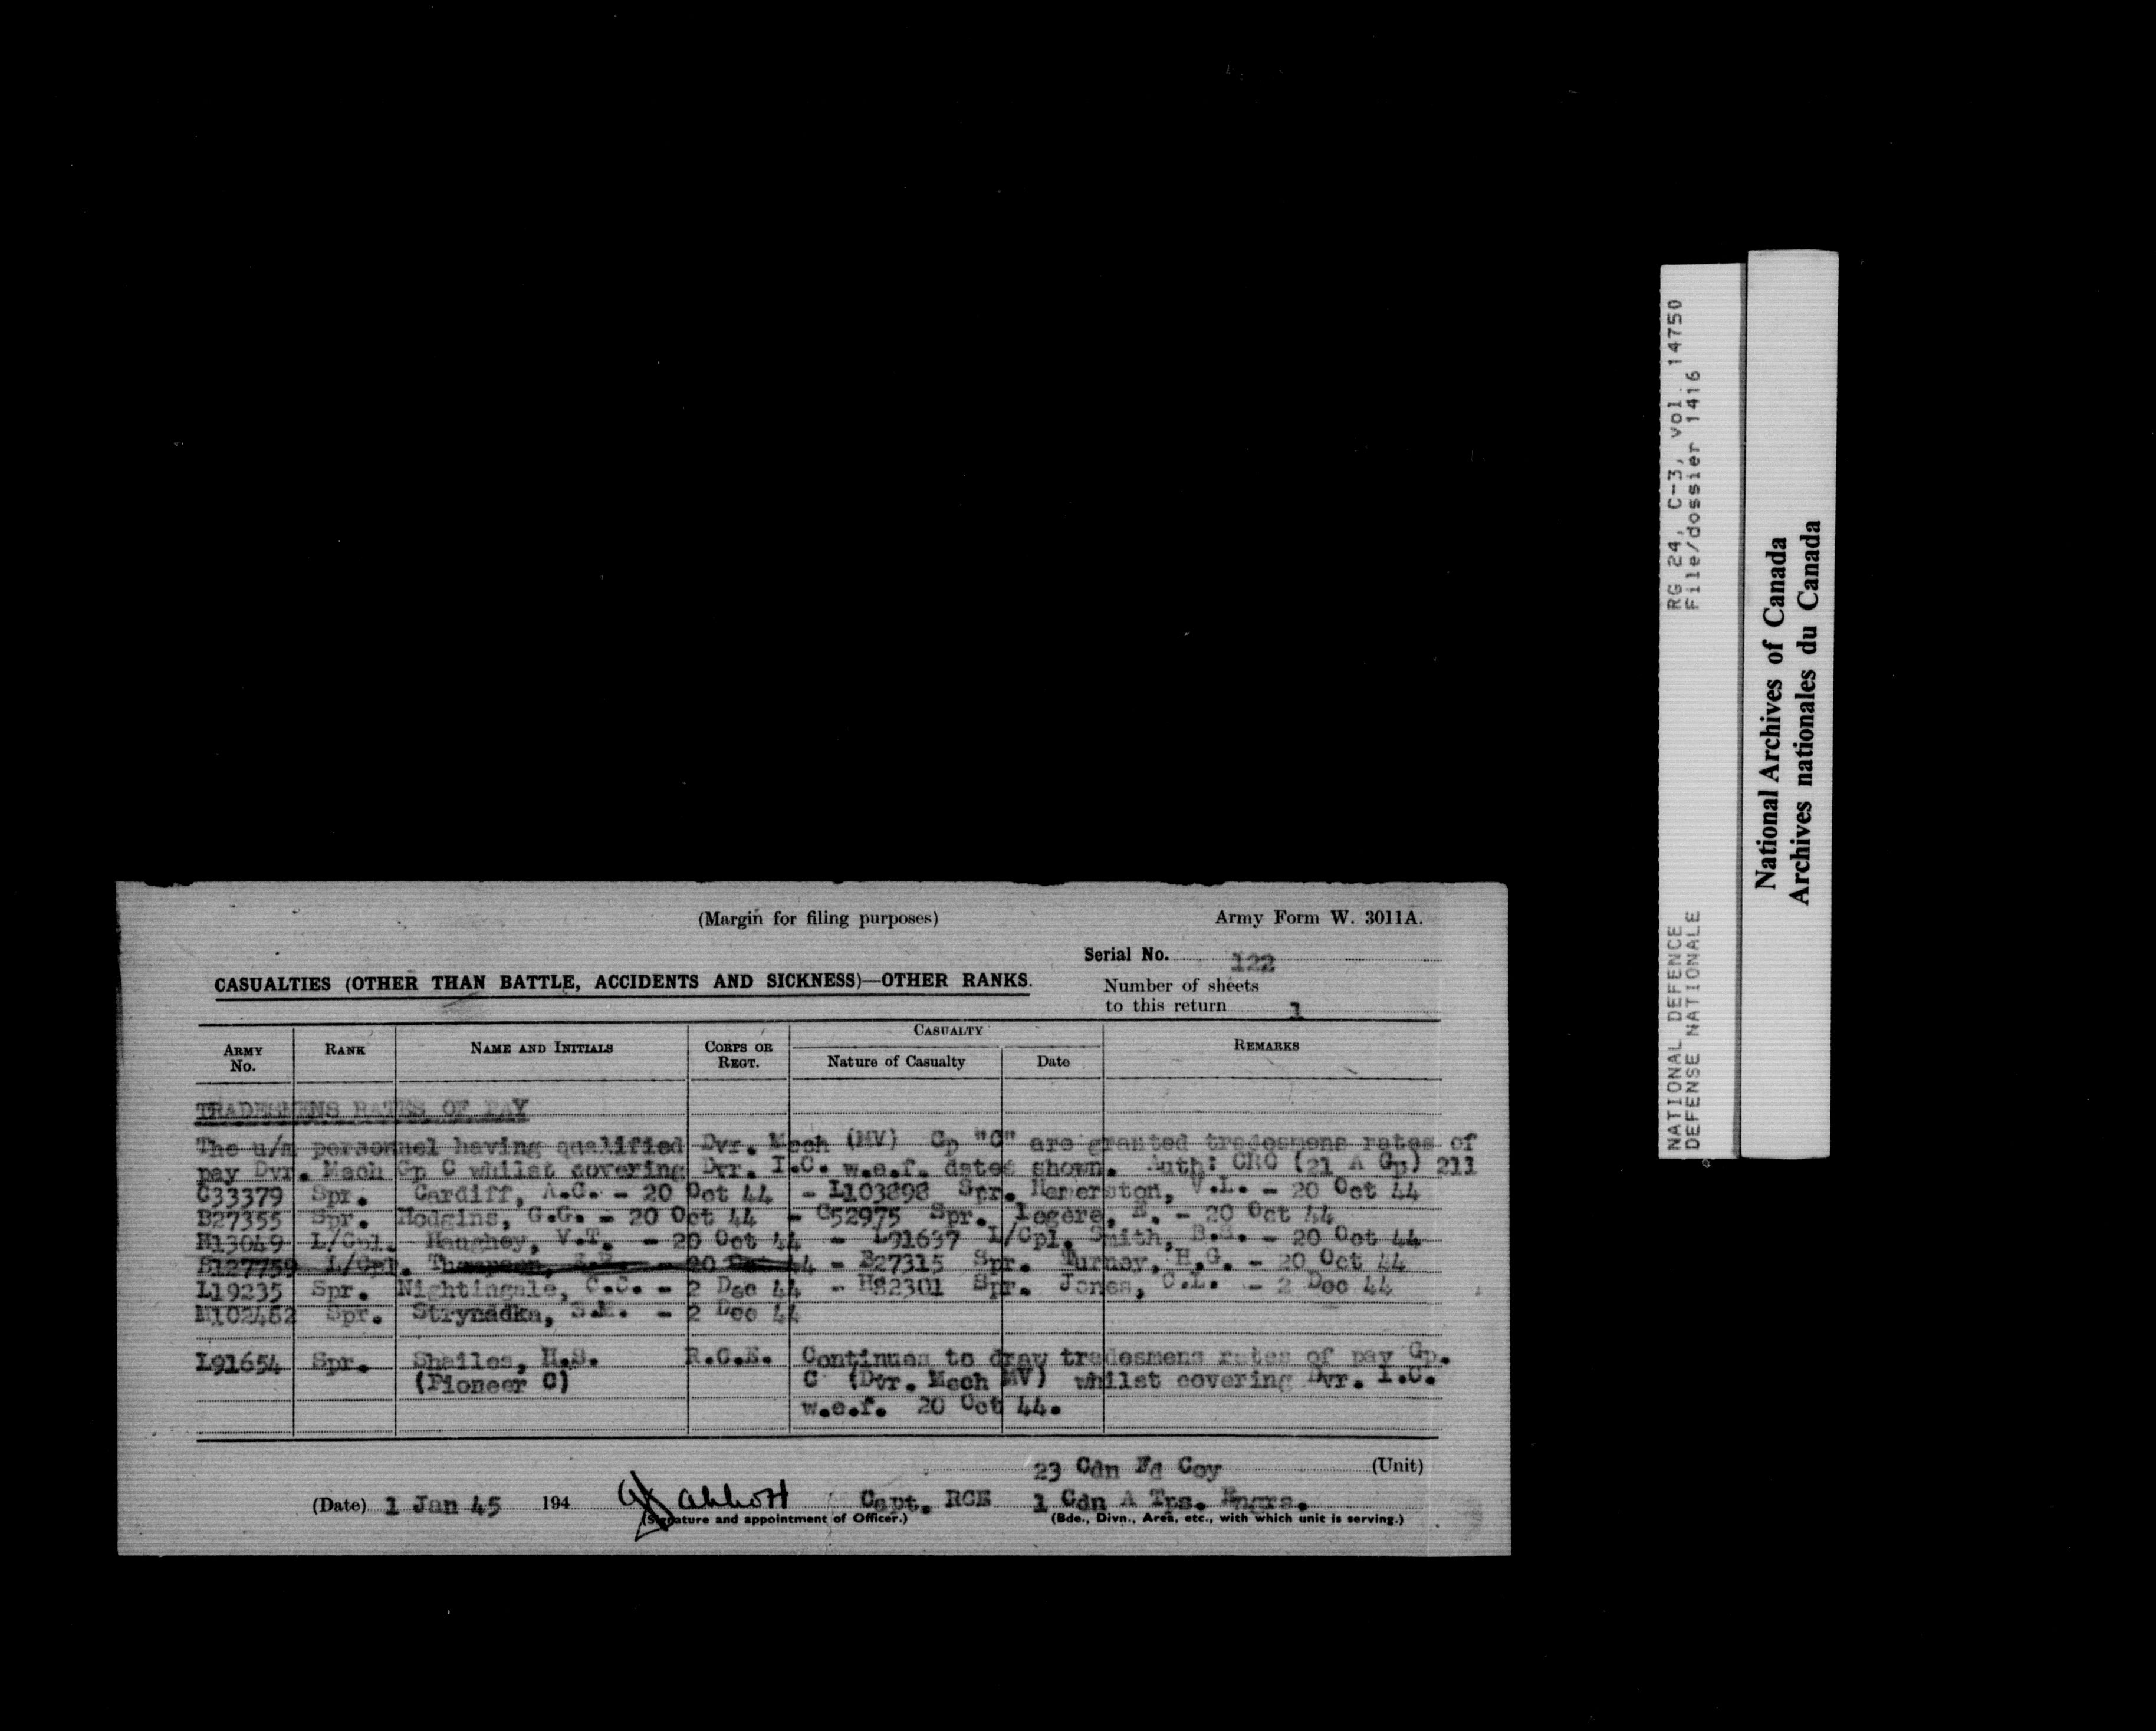 (Margin for filing purposes)
Army Form W. 3011A.
Serial No. 122
CASUALTIES (OTHER THAN BATTLE, ACCIDENTS AND SICKNESS)—OTHER RANKS.
Number of sheets
to this return 1
ARMY No. RANK NAME AND INITIALS CORPS OR REGT. CASUALTY REMARKS
Nature of Casualty Date
TRADESMENS RATES OF PAY
The u/m personnel having qualified Dvr. Mech (MV) Gp "C" are granted tradesmens rates of
pay Dvr. Mech Gp C whilst covering Dvr. I.C. w.e.f. dates shown. Auth: CRO (21 A Gp) 211
C33379 Spr. Cardiff, A.C. - 20 Oct 44 - L103898 Spr. Hamerston, V.L. - 20 Oct 44
B27355 Spr. Hodgins, G.G. - 20 Oct 44 - C52975 Spr. Legere, E. - 20 Oct 44
H13049 L/Cpl. Haughey, V.T. - 20 Oct 44 - L91637 L/Cpl. Smith, B.S. - 20 Oct 44
B127759 L/Cpl. Thompson, - 20 Oct 44 - B27315 Spr. Turney, H.G. - 20 Oct 44
L19235 Spr. Nightingale, C.C. - 2 Dec 44 - H82301 Spr. Jones, C.L. - 2 Dec 44
M102482 Spr. Strynadka, S.M. - 2 Dec 44
L91654 Spr. Shailes, H.S. R.C.E. Continues to draw tradesmens rates of pay Gp.
(Pioneer C) C (Dvr. Mech MV) whilst covering Dvr. I.C.
w.e.f. 20 Oct 44.
23 Cdn Fd Coy (Unit)
(Date) 1 Jan 45 194 Abbott Capt. RCE 1 Cdn A Tps. Engrs.
(Signature and appointment of Officer.) (Bde., Divn., Area, etc., with which unit is serving.)
RG 24, C-3, vol. 14750
File/dossier 1416
NATIONAL DEFENCE
DEFENSE NATIONALE
National Archives of Canada
Archives nationales du Canada